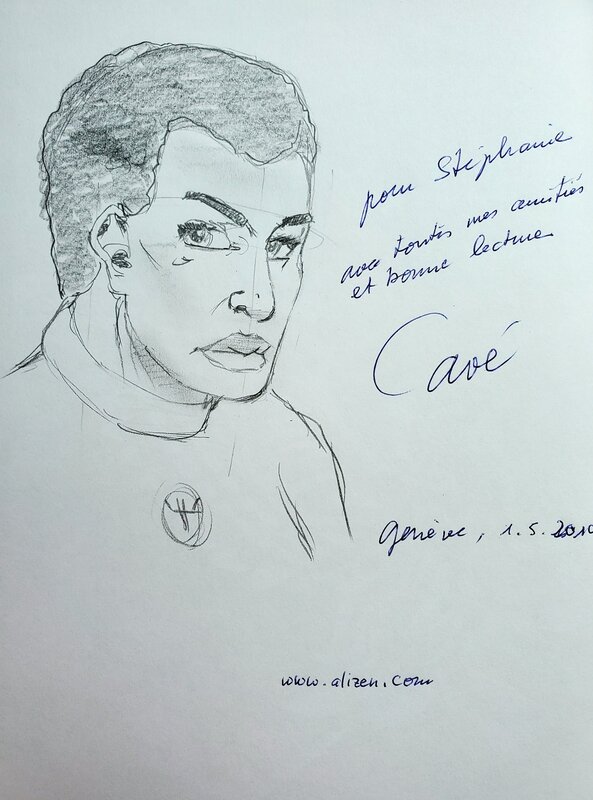 pour Stéphanie
avec toutes mes amitiés
et bonne lecture
Cavé
Genève, 1.5.2010
www.alizen.com